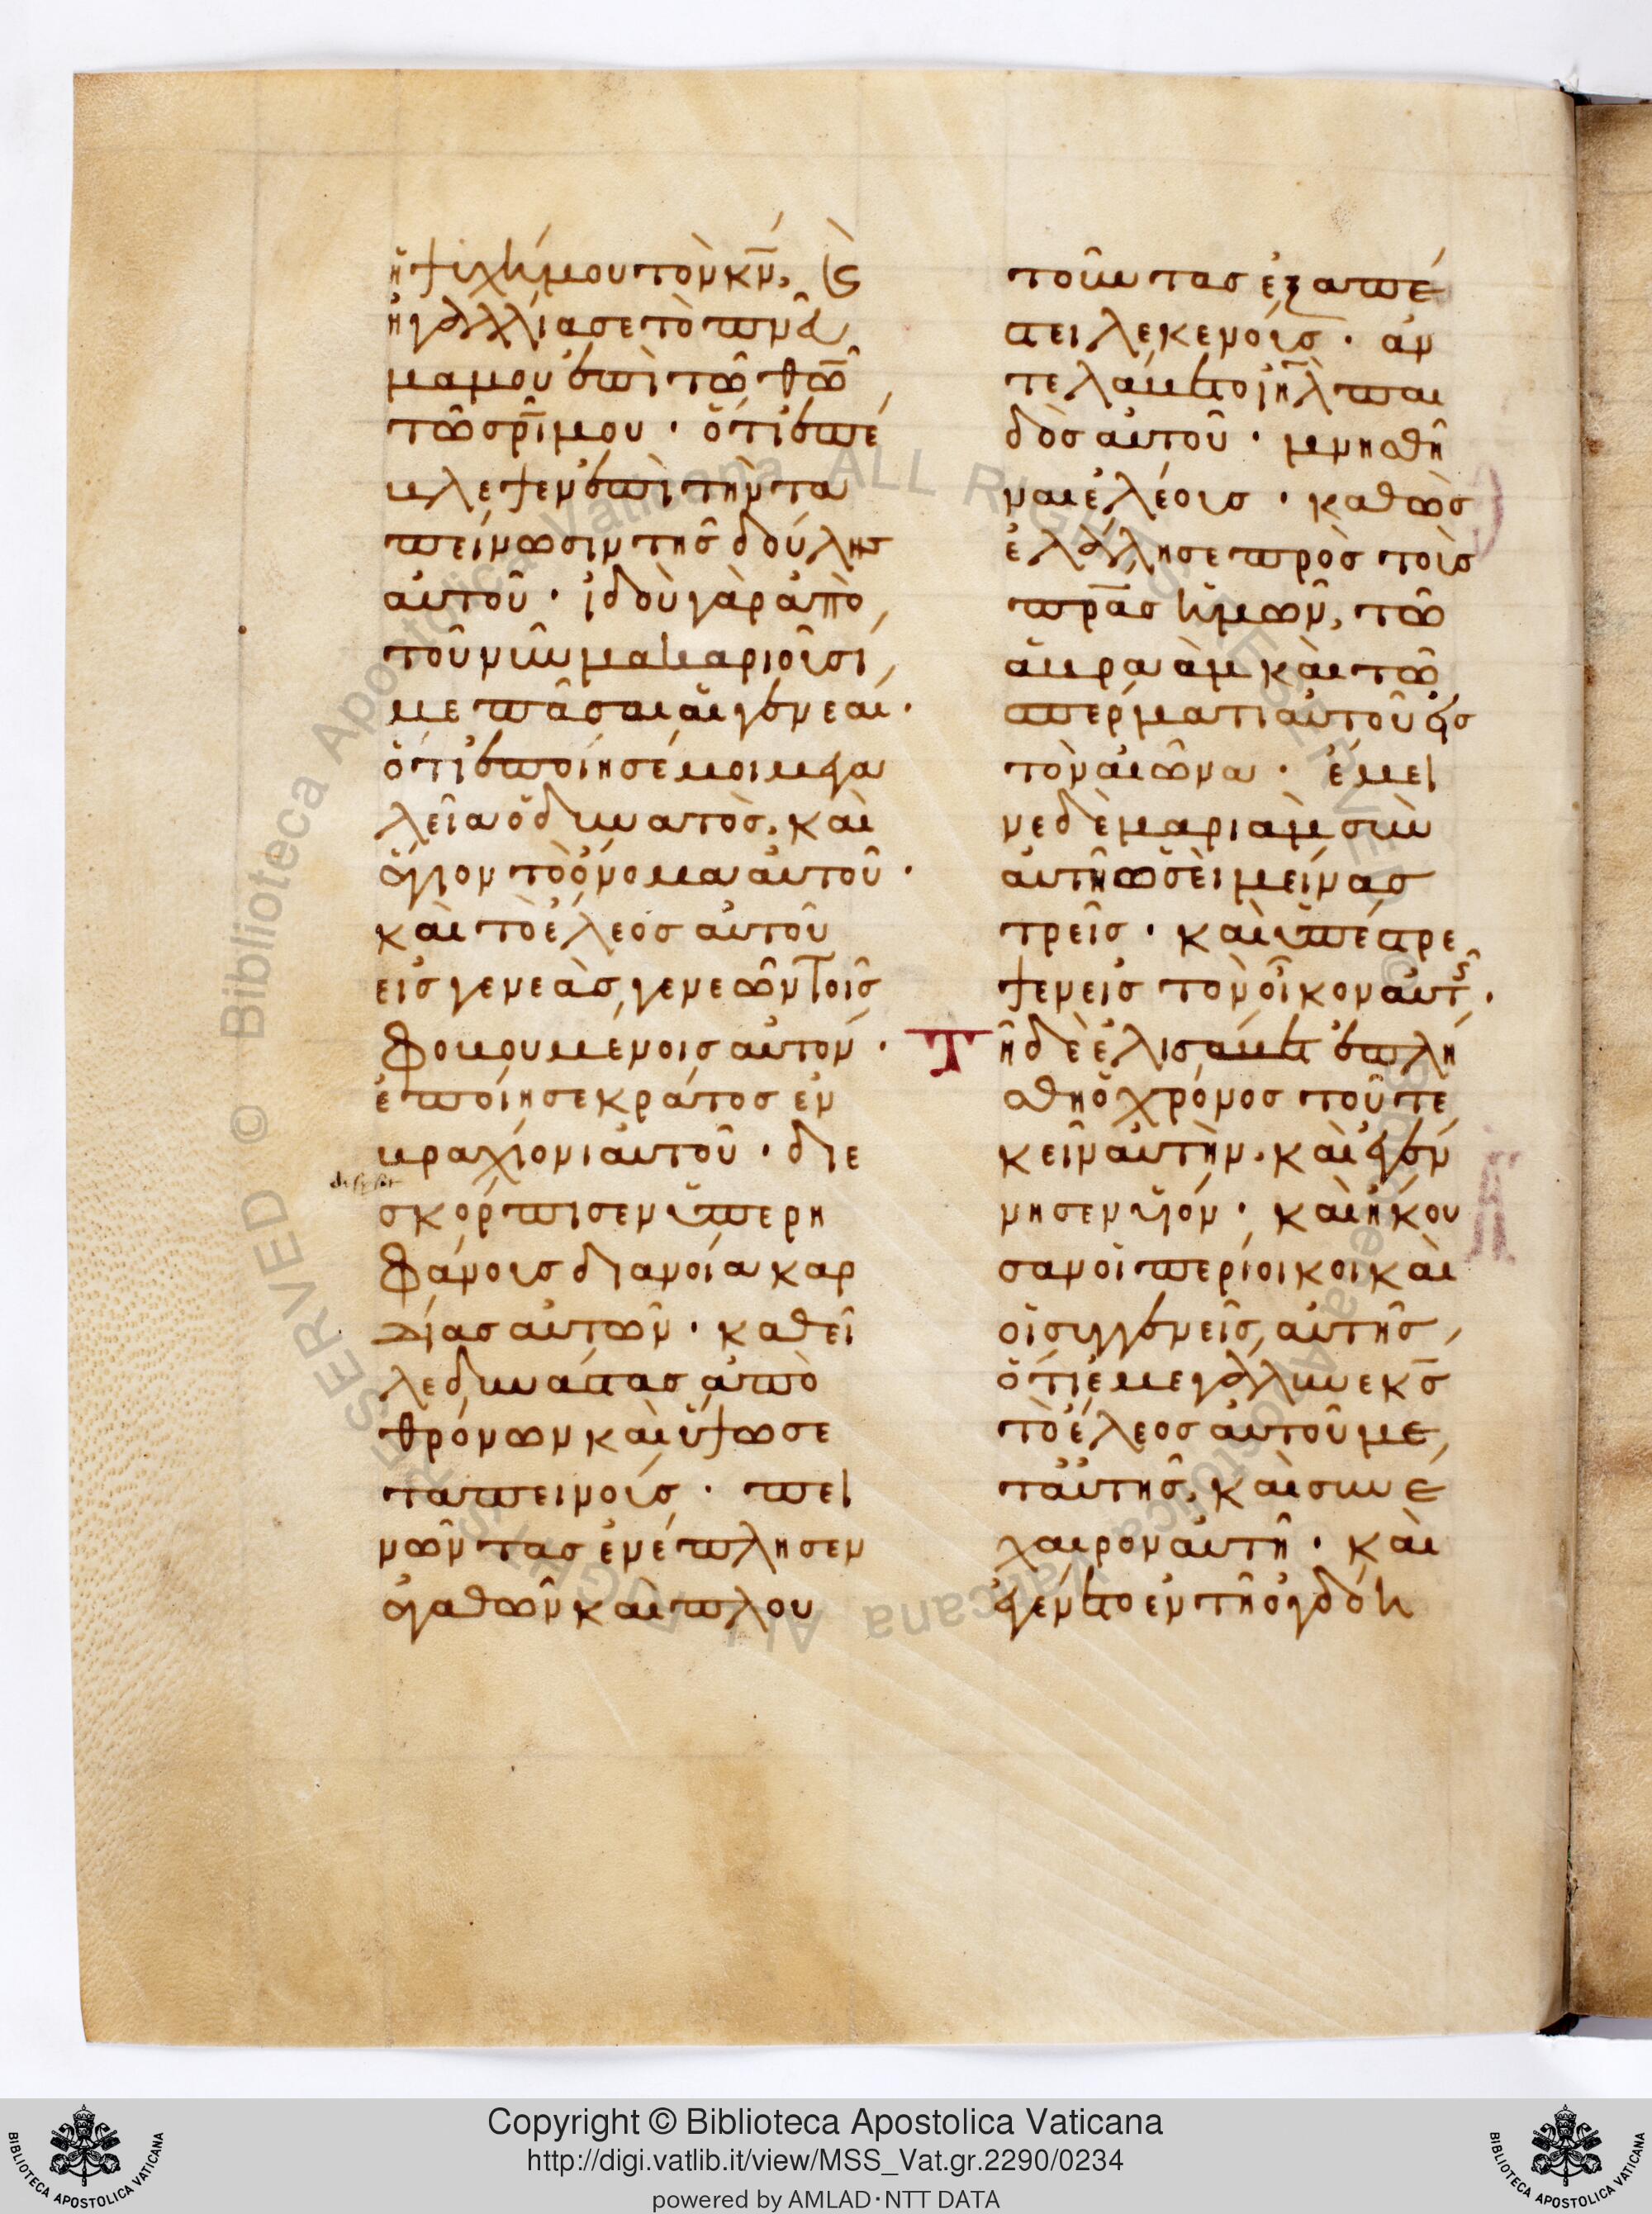 ἡ ψυχή μου τὸν κ̅ν̅, (καὶ)
ἠγαλλίασε τὸ πν̅ᾶ
μα μου ἐπὶ τῶ θ̅ῶ̅
τῶ σ̅ρ̅ι̅ μου · ὅτι ἐπέ
βλεψεν ἐπὶ τὴν τα
πείνωσιν τῆς δούλης
αὐτοῦ · ἰδοὺ γὰρ ἀπὸ
τοῦ νῦν μακαριοῦσί
με πᾶσαι αἱ γενεαί ·
ὅτι ἐποίησέ μοι μεγα
λεῖα ὁ δυνατὸς, καὶ
ἅγιον τὸ ὄνομα αὐτοῦ ·
καὶ τὸ ἔλεος αὐτοῦ
εἰς γενεὰς γενεῶν τοῖς
φοβουμένοις αὐτόν ·
ἐποίησε κράτος ἐν
βραχίονι αὐτοῦ · διε
σκόρπισεν ὑπερη
φάνους διανοία καρ
δίας αὐτῶν · καθεῖ
λε δυνάστας ἀπὸ
θρόνων καὶ ὕψωσε
ταπεινούς · πει
νῶντας ἐνέπλησεν
ἀγαθῶν καὶ πλου
τοῦντας ἐξαπέ
στειλε κενούς · ἀν
τελάβετο ι̅η̅λ̅ παι
δὸς αὐτοῦ · μνησθῆ
ναι ἐλέους · καθὼς
ἐλάλησε πρὸς τοὺς
π̅ρ̅ας ἡμῶν, τῶ
ἀβραὰμ καὶ τῶ
σπέρματι αὐτοῦ εἰς
τὸν αἰῶνα · ἔμει
νε δὲ μαριὰμ σὺν
αὐτῆ ὡσεὶ μῆνας
τρεῖς · καὶ ὑπέστρε
ψεν εἰς τὸν οἶκον αὐτ(ῆς) ·
Τῆ δὲ ἐλισάβετ ἐπλή
σθη ὁ χρόνος τοῦ τε
κεῖν αὐτὴν, καὶ ἐγέν
νησεν υἱόν · καὶ ἤκου
σαν οἱ περίοικοι καὶ
οἱ συγγενεῖς αὐτῆς,
ὅτι ἐμεγάλυνε κ̅ς̅
τὸ ἔλεος αὐτοῦ με
τ᾽αὐτῆς, καὶ συνέ
χαιρον αὐτῆ · καὶ
ἐγένετο ἐν τῆ ὀγδόη
Copyright © Biblioteca Apostolica Vaticana
http://digi.vatlib.it/view/MSS_Vat.gr.2290/0234
powered by AMLAD·NTT DATA